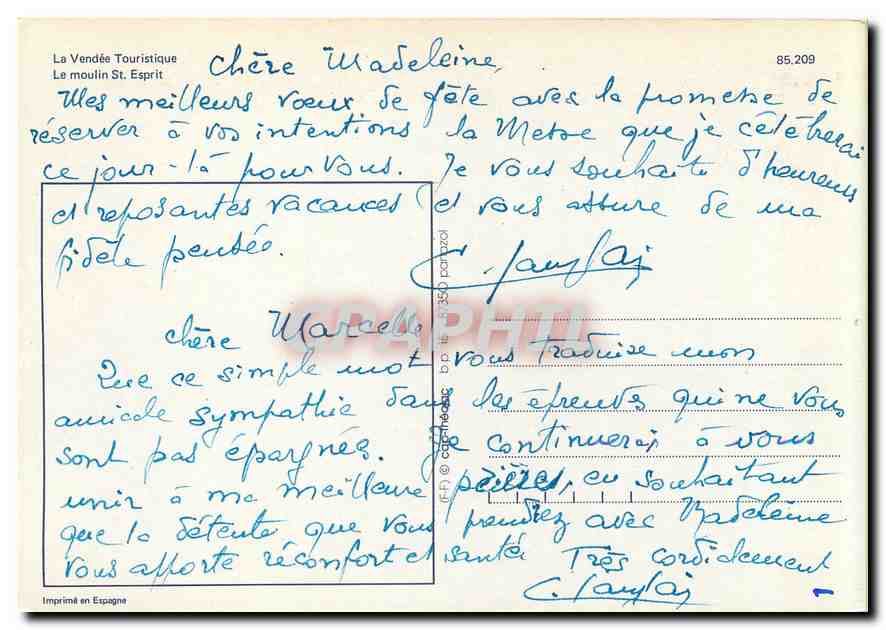 La Vendée Touristique
Le moulin St. Esprit
85.209
Chère Madeleine,
Mes meilleurs voeux de fête avec la promesse de
réserver à vos intentions la Messe que je célébrerai
ce jour-là pour vous. Je vous souhaite d'heureuses
et reposantes vacances et vous assure de ma
fidèle pensée.
C. Langlais
Chère Marcelle
Que ce simple mot vous traduise mon
amicale sympathie dans les épreuves qui ne vous
sont pas épargnées. Je continuerai à vous
unir à ma meilleure prière, en souhaitant
que la détente que vous prendrez avec Madeleine
vous apporte réconfort et santé Très cordialement
C. Langlais
(F-F) © cap-théojac b.p. 16 - 87350 panazol
Imprimé en Espagne
CPAPHIL